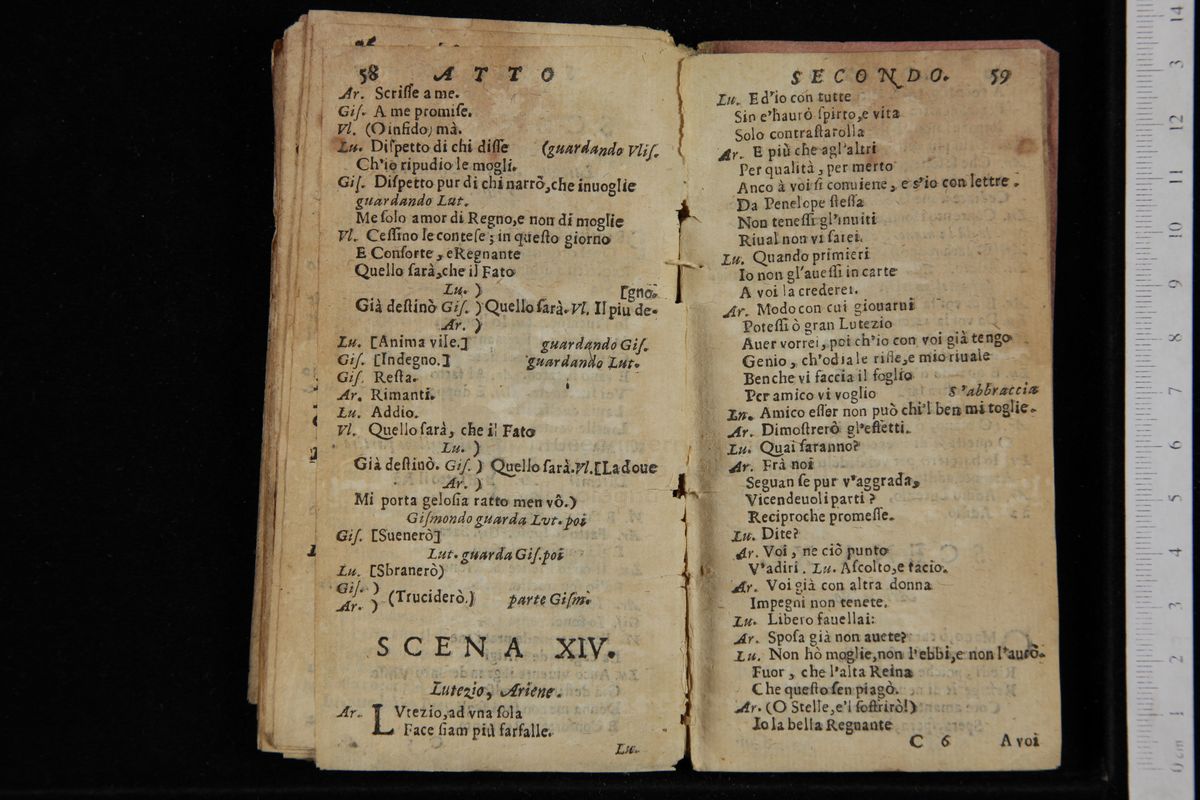 58 ATTO
Ar. Scrisse a me.
Gis. A me promise.
Vl. (O infido) mà.
Lu. Dispetto di chi disse (guardando Vlis.
Ch'io ripudio le mogli.
Gis. Dispetto pur di chi narrò, che inuoglie
guardando Lut.
Me solo amor di Regno, e non di moglie
Vl. Cessino le contese; in questo giorno
E Consorte, e Regnante
Quello sarà, che il Fato
Lu. ) [gno.
Già destinò Gis. ) Quello sarà. Vl. Il piu de-
Ar. )
Lu. [Anima vile.] guardando Gis.
Gis. [Indegno.] guardando Lut.
Gis. Resta.
Ar. Rimanti.
Lu. Addio.
Vl. Quello sarà, che il Fato
Lu. )
Già destinò. Gis. ) Quello sarà. Vl. [La doue
Ar. )
Mi porta gelosia ratto men vô.)
Gismondo guarda Lut. poi
Gis. [Suenerò]
Lut. guarda Gis. poi
Lu. [Sbranerò)
Gis. )
Ar. ) (Truciderò.) parte Gism.
SCENA XIV.
Lutezio, Ariene.
Ar. LVtezio, ad vna sola
Face siam più farfalle.
Lu.
SECONDO. 59
Lu. Ed'io con tutte
Sin c'haurò spirto, e vita
Solo contrastarolla
Ar. E più che agl'altri
Per qualità, per merto
Anco à voi si conuiene, e s'io con lettre.
Da Penelope stessa
Non tenessi gl'inuiti
Riual non vi sarei.
Lu. Quando primieri
Io non gl'auessi in carte
A voi la crederei.
Ar. Modo con cui giouarui
Potessi ò gran Lutezio
Auer vorrei, poi ch'io con voi già tengo
Genio, ch'odia le risse, e mio riuale
Benche vi faccia il foglio
Per amico vi voglio s'abbraccia
Lu. Amico esser non può chi'l ben mi toglie.
Ar. Dimostrerò gl'effetti.
Lu. Quai saranno?
Ar. Frà noi
Seguan se pur v'aggrada,
Vicendeuoli parti?
Reciproche promesse.
Lu. Dite?
Ar. Voi, ne ciò punto
V'adiri. Lu. Ascolto, e tacio.
Ar. Voi già con altra donna
Impegni non tenete.
Lu. Libero fauellai:
Ar. Sposa già non auete?
Lu. Non hò moglie, non l'ebbi, e non l'aurò.
Fuor, che l'alta Reina
Che questo sen piagò.
Ar. (O Stelle, e'l soffrirò!)
Io la bella Regnante
C 6 A voi